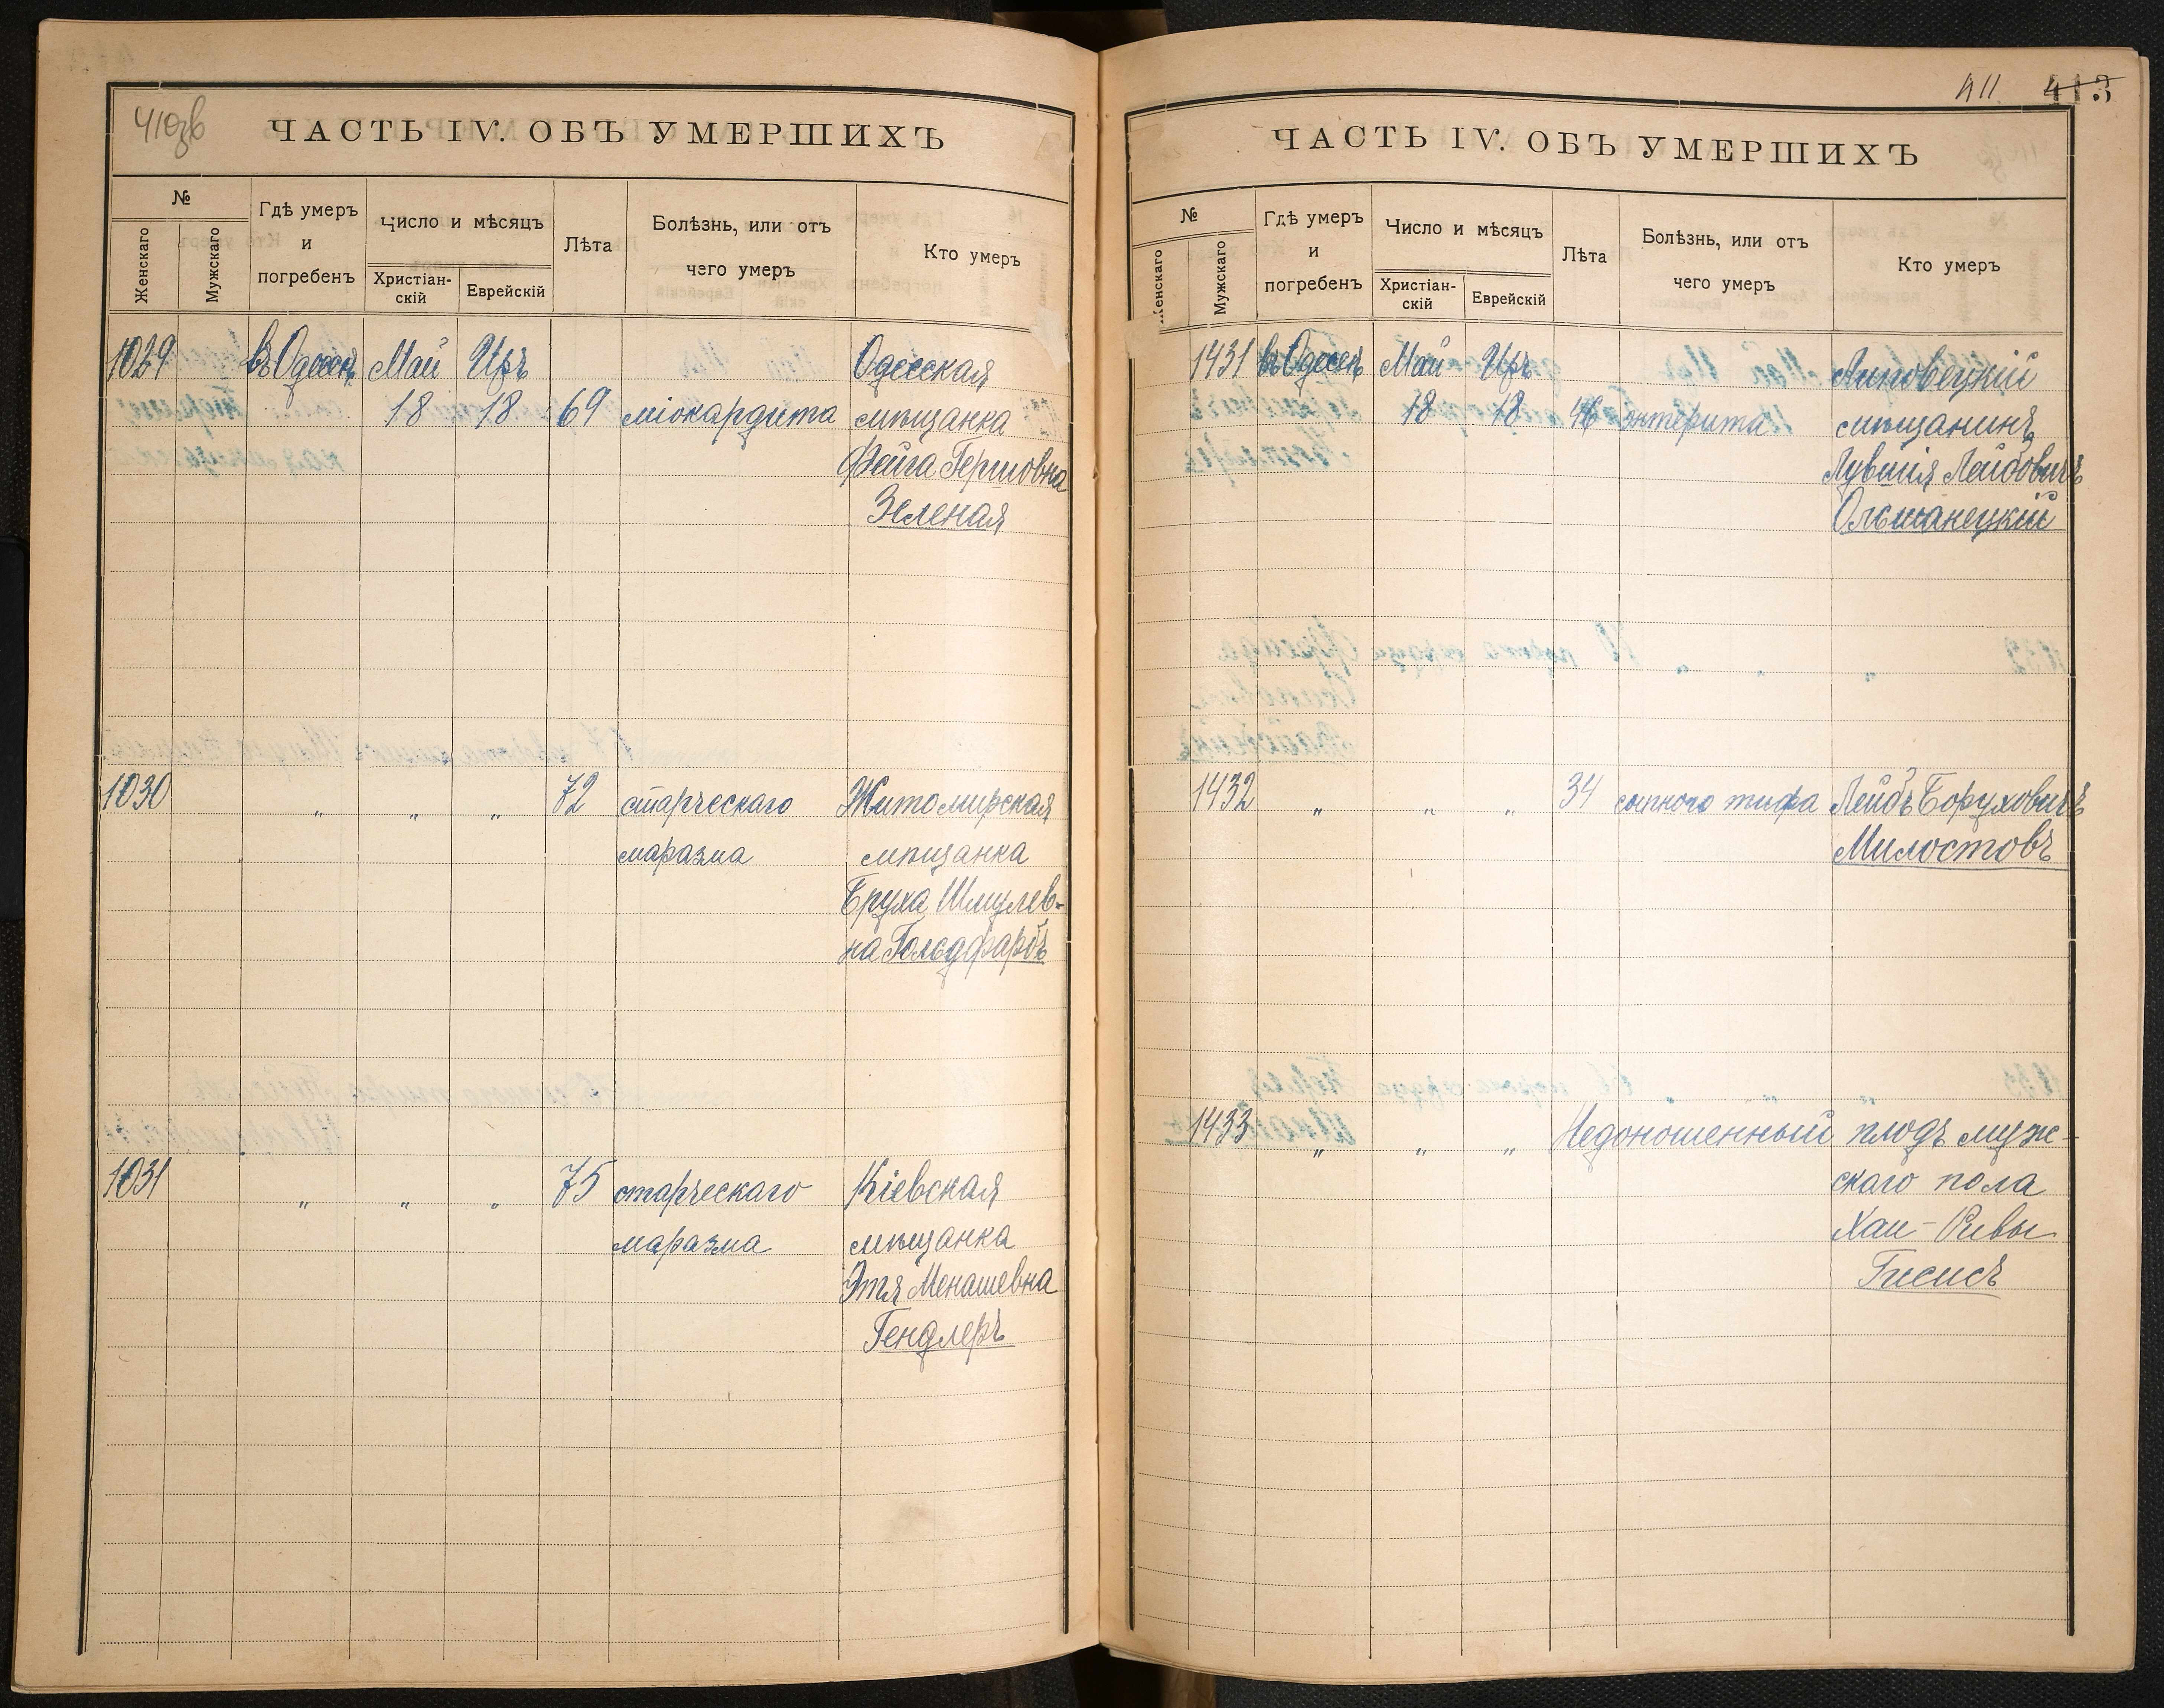 410зв
ЧАСТЬ IV. ОБЪ УМЕРШИХЪ
№
Женскаго
Мужскаго
Гдѣ умеръ
и
погребенъ
Число и мѣсяцъ
Христіан-
скій
Еврейскій
Лѣта
Болѣзнь, или отъ
чего умеръ
Кто умеръ
1029 въ Одессѣ Май Иръ Одесская
18 18 69 міокардита мѣщанка
Фейга Гершовна
Зеленая
1030 „ „ „ 72 старческаго Житомирская
маразма мѣщанка
Бруха Шмулев-
на Гольдфарбъ
1031 „ „ „ 75 старческаго Кіевская
маразма мѣщанка
Этя Менашевна
Гендлеръ
411 413
ЧАСТЬ IV. ОБЪ УМЕРШИХЪ
№
Женскаго
Мужскаго
Гдѣ умеръ
и
погребенъ
Число и мѣсяцъ
Христіан-
скій
Еврейскій
Лѣта
Болѣзнь, или отъ
чего умеръ
Кто умеръ
1431 въ Одессѣ Май Иръ Липовецкій
18 18 46 энтерита мѣщанинъ
Лейбовичъ
Ольшанецкій
1432 „ „ „ 34 сыпного тифа Лейбъ Боруховичъ
Милостовъ
1433 „ „ „ Недоношенный плодъ муж-
скаго пола
Хаи-Ривы
Гисисъ